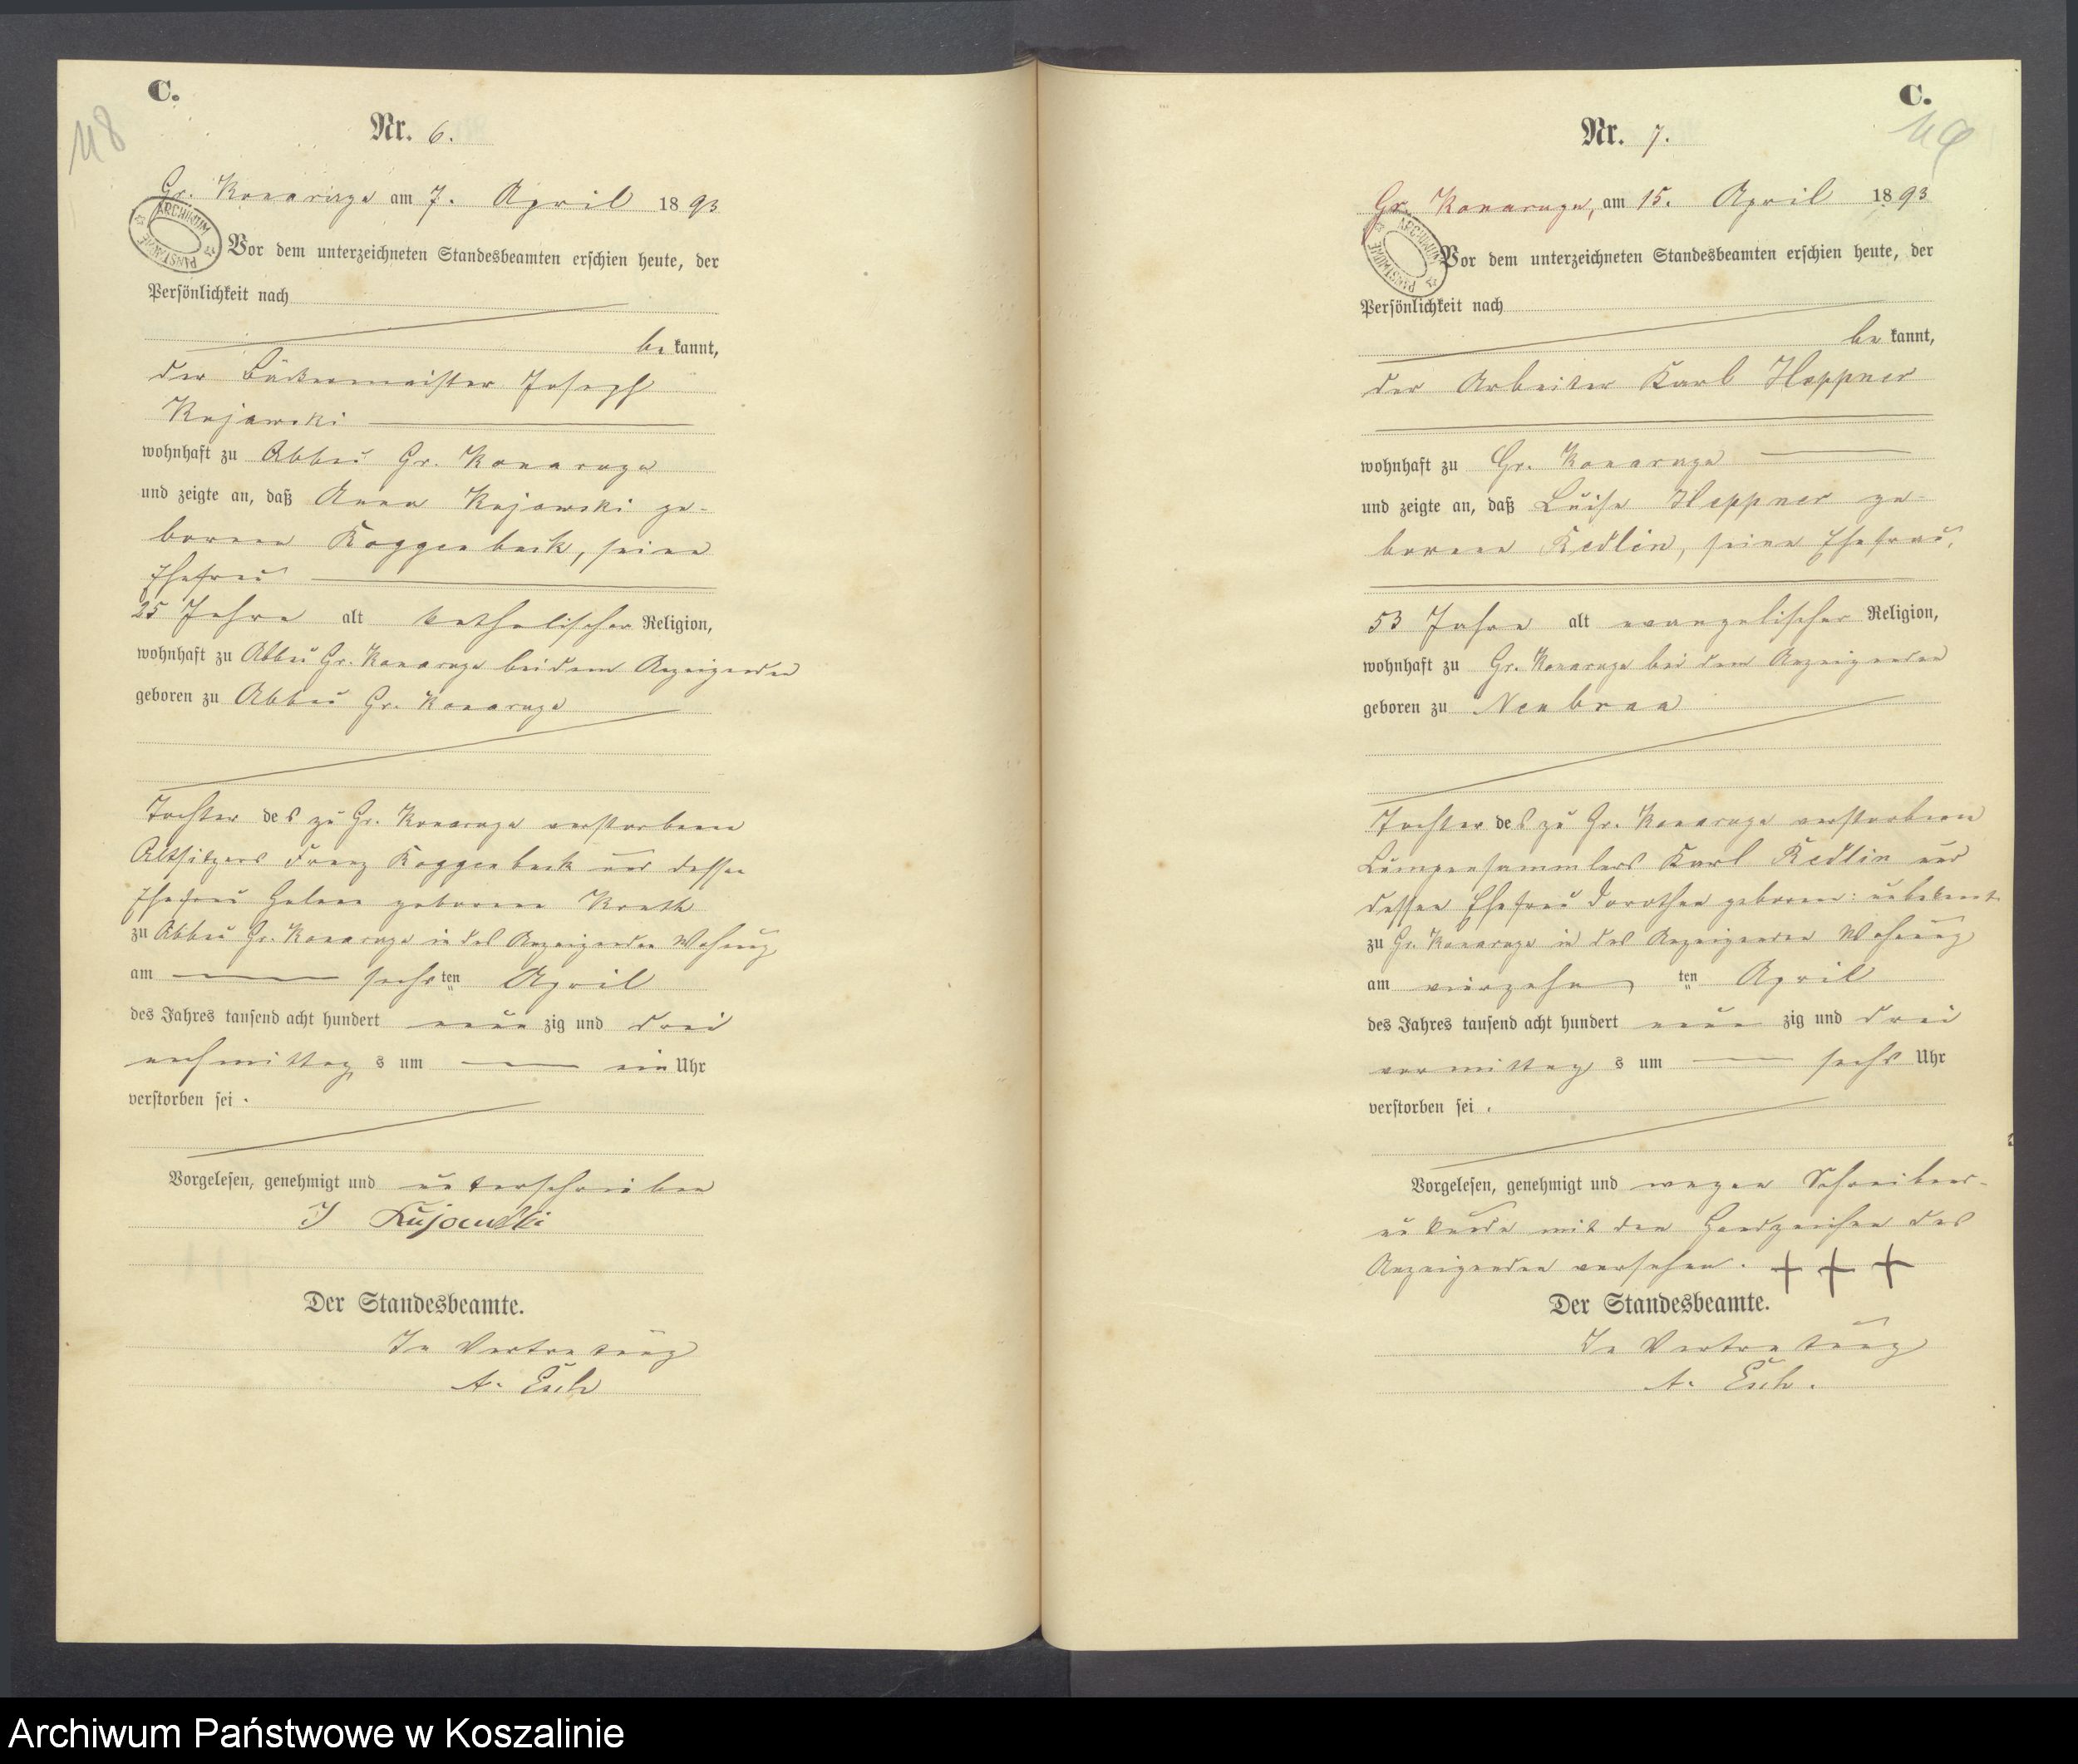 C.
118
Nr. 6.
Gr. Konarczyn am 7. April 1893
ARCHIWUM PAŃSTWOWE
Vor dem unterzeichneten Standesbeamten erschien heute, der
Persönlichkeit nach
be kannt,
der Bäckermeister Joseph
Kujawski
wohnhaft zu Abbau Gr. Konarczyn
und zeigte an, daß Anna Kujawski ge-
borene Roggenbuck, seine
Ehefrau
25 Jahre alt katholischer Religion,
wohnhaft zu Abbau Gr. Konarczyn bei dem Anzeigenden
geboren zu Abbau Gr. Konarczyn
Tochter des zu Gr. Konarczyn verstorbenen
Altsitzers Franz Roggenbuck und dessen
Ehefrau Helene geborene
zu Abbau Gr. Konarczyn in des Anzeigenden Wohnung
am sechsten April
des Jahres tausend acht hundert neun zig und drei
nachmittag s um ein Uhr
verstorben sei.
Vorgelesen, genehmigt und unterschrieben
J Kujawski
Der Standesbeamte.
In Vertretung
A. Esch
C.
119
Nr. 7.
Gr. Konarczyn, am 15. April 1893
ARCHIWUM PAŃSTWOWE
Vor dem unterzeichneten Standesbeamten erschien heute, der
Persönlichkeit nach
be kannt,
der Arbeiter Karl Heppner
wohnhaft zu Gr. Konarczyn
und zeigte an, daß Luise Heppner ge-
borene Redlin, seine Ehefrau,
53 Jahre alt evangelischer Religion,
wohnhaft zu Gr. Konarczyn bei dem Anzeigenden
geboren zu Neubraa
Tochter des zu Gr. Konarczyn verstorbenen
Lumpensammlers Karl Redlin und
dessen Ehefrau Dorothea geboren: unbekannt
zu Gr. Konarczyn in des Anzeigenden Wohnung
am vierzehn ten April
des Jahres tausend acht hundert neun zig und drei
vormittag s um sechs Uhr
verstorben sei.
Vorgelesen, genehmigt und wegen Schreibens-
unkunde mit den Handzeichen des
Anzeigenden versehen. + + +
Der Standesbeamte.
In Vertretung
A. Esch.
Archiwum Państwowe w Koszalinie